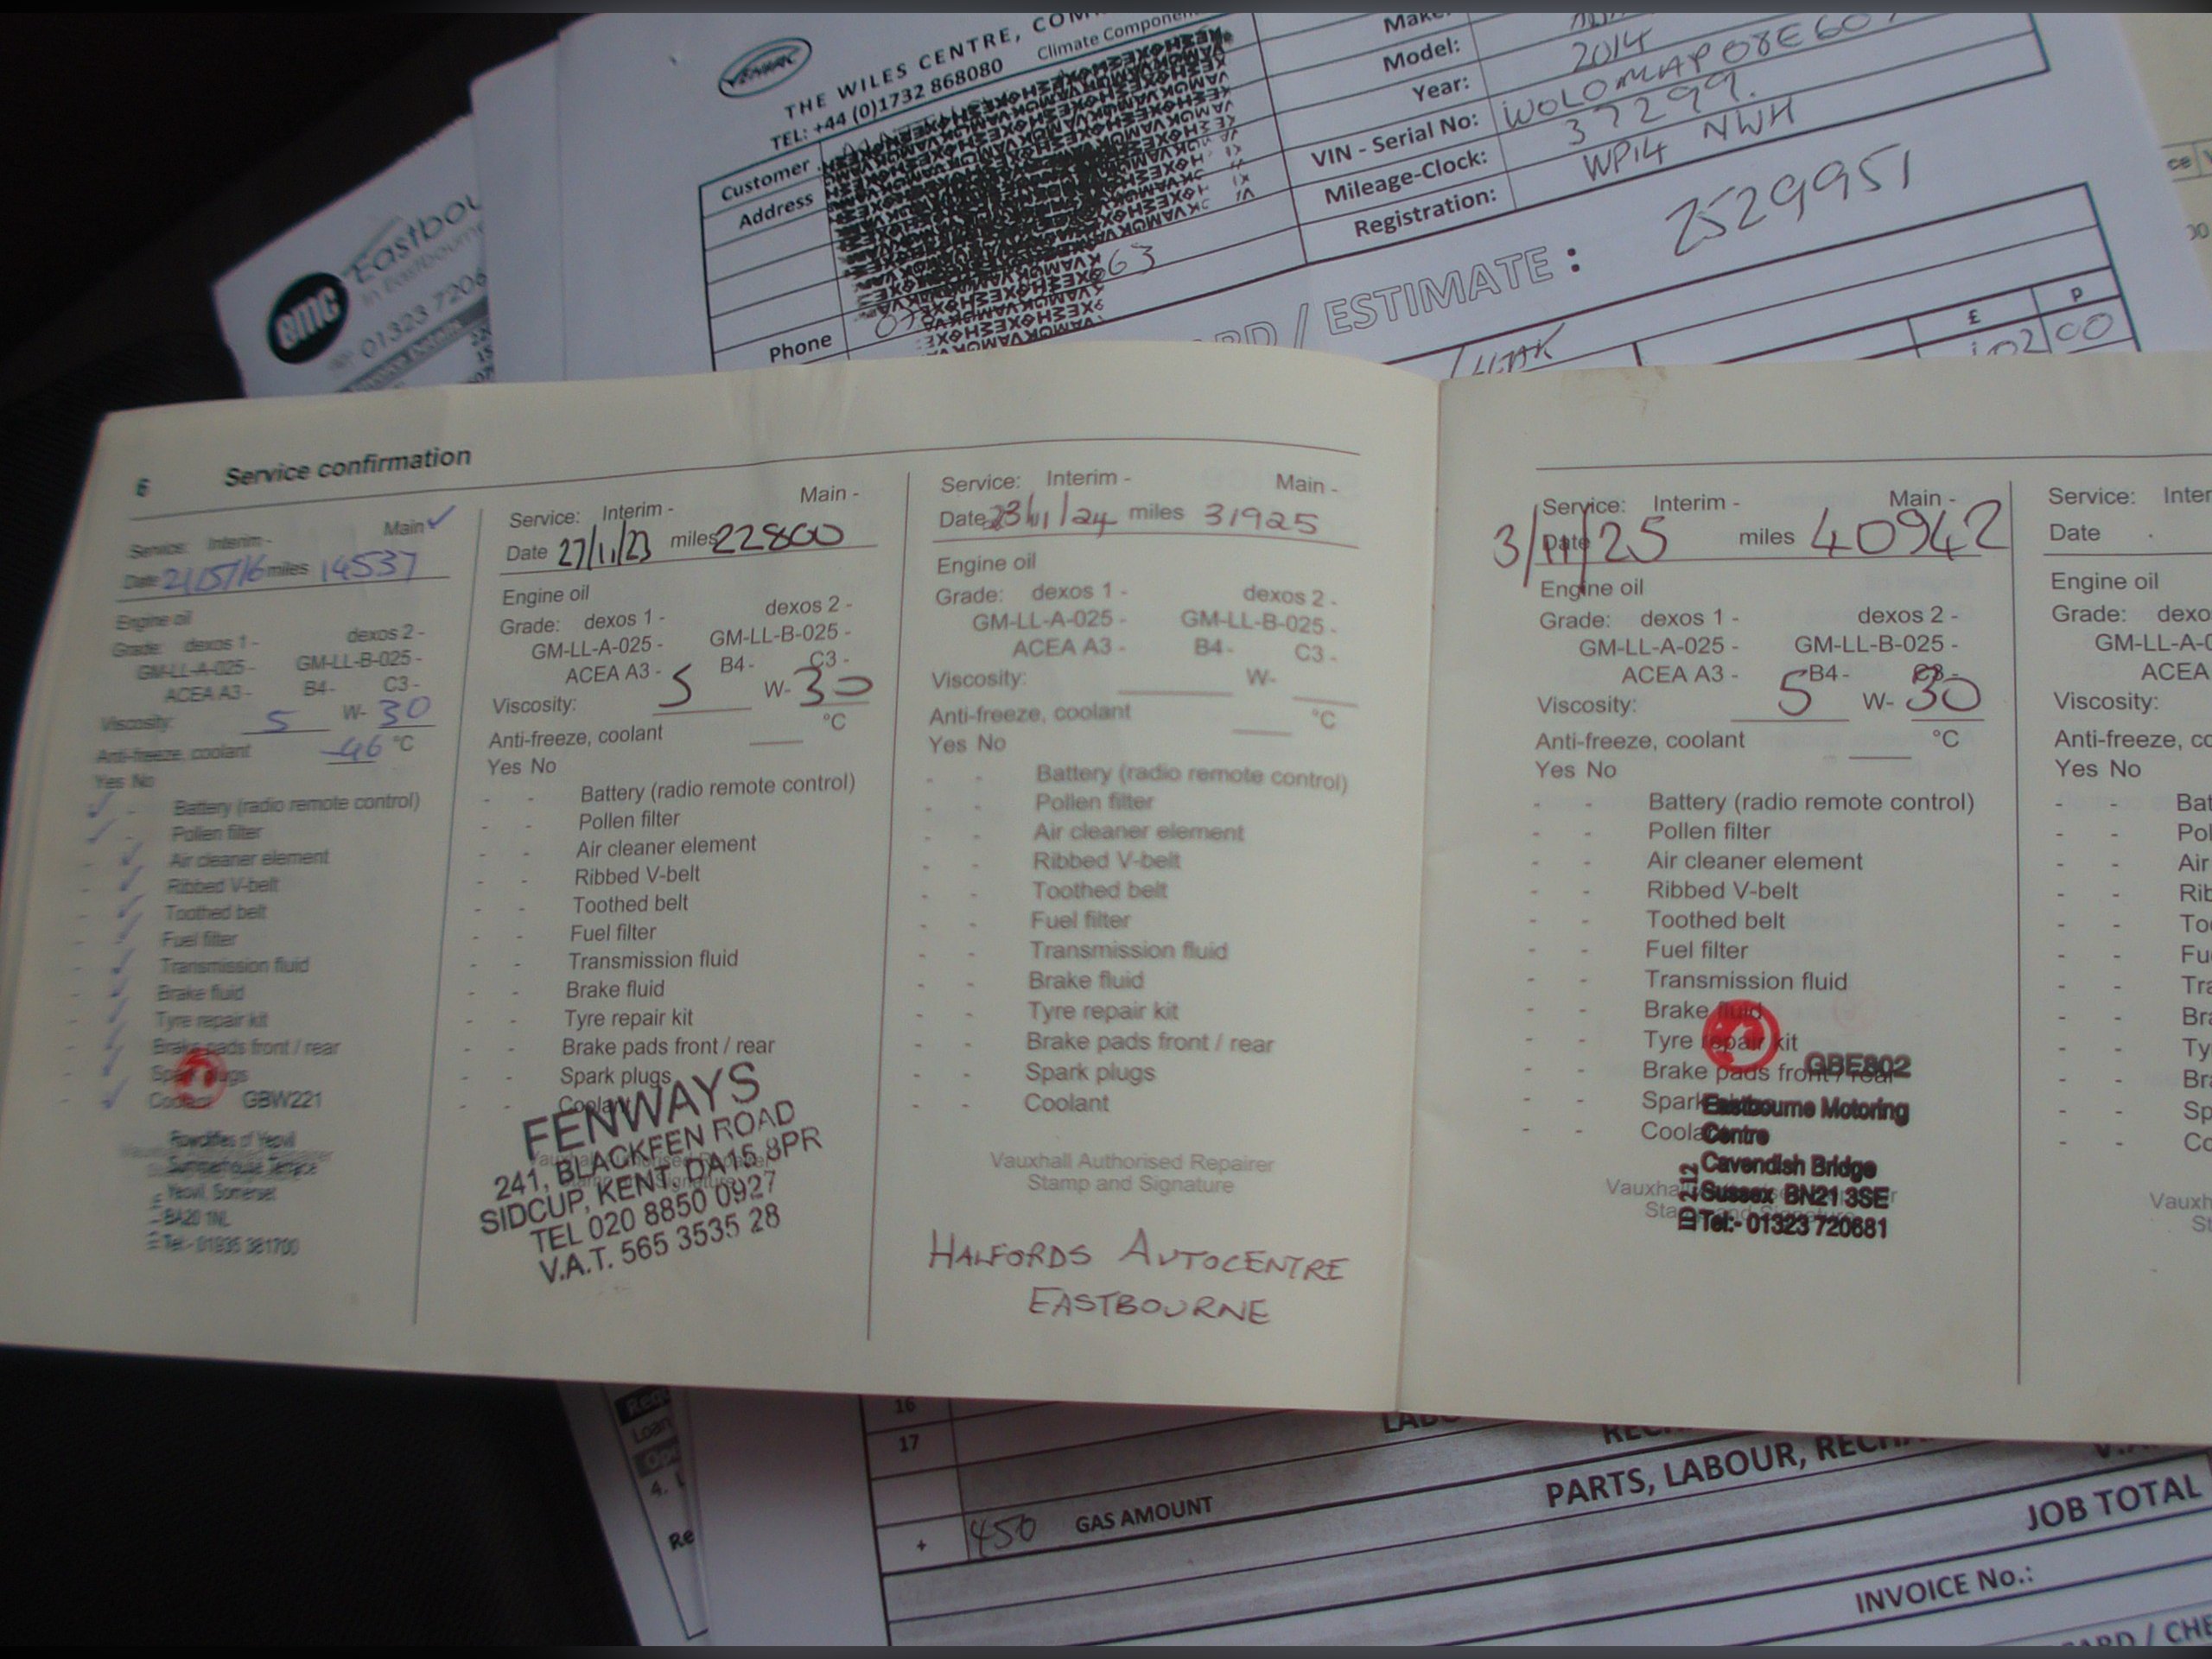 THE WILES CENTRE, COM
TEL: +44 (0)1732 868080 Climate Component
Customer
Address
Phone
63
Make:
Model:
Year: 2014
VIN - Serial No: WOLOMAP08E60
Mileage-Clock: 37299.
Registration: WP14 NWH
RD / ESTIMATE : 2529951
£ p
102 00
emc Eastbou
in Eastbourne
01323 7206
6 Service confirmation
Service: Interim - Main ✓
Date 21/5/16 miles 14537
Engine oil
Grade: dexos 1 - dexos 2 -
GM-LL-A-025 - GM-LL-B-025 -
ACEA A3 - B4 - C3 -
Viscosity: 5 W- 30
Anti-freeze, coolant -46 °C
Yes No
✓ - Battery (radio remote control)
✓ - Pollen filter
- ✓ Air cleaner element
- ✓ Ribbed V-belt
- ✓ Toothed belt
- ✓ Fuel filter
- ✓ Transmission fluid
- ✓ Brake fluid
- ✓ Tyre repair kit
- ✓ Brake pads front / rear
- ✓ Spark plugs
- ✓ Coolant GBW221
Yeovil, Somerset
BA20 1NL
Tel:- 01935 381700
Service: Interim - Main -
Date 27/11/23 miles 22800
Engine oil
Grade: dexos 1 - dexos 2 -
GM-LL-A-025 - GM-LL-B-025 -
ACEA A3 - B4 - C3 -
Viscosity: 5 W- 30
Anti-freeze, coolant °C
Yes No
- - Battery (radio remote control)
- - Pollen filter
- - Air cleaner element
- - Ribbed V-belt
- - Toothed belt
- - Fuel filter
- - Transmission fluid
- - Brake fluid
- - Tyre repair kit
- - Brake pads front / rear
- - Spark plugs
- - Coolant
FENWAYS
241, BLACKFEN ROAD
SIDCUP, KENT, DA15 8PR
TEL 020 8850 0927
V.A.T. 565 3535 28
Service: Interim - Main -
Date 23/11/24 miles 31925
Engine oil
Grade: dexos 1 - dexos 2 -
GM-LL-A-025 - GM-LL-B-025 -
ACEA A3 - B4 - C3 -
Viscosity: W-
Anti-freeze, coolant °C
Yes No
- - Battery (radio remote control)
- - Pollen filter
- - Air cleaner element
- - Ribbed V-belt
- - Toothed belt
- - Fuel filter
- - Transmission fluid
- - Brake fluid
- - Tyre repair kit
- - Brake pads front / rear
- - Spark plugs
- - Coolant
Vauxhall Authorised Repairer
Stamp and Signature
HALFORDS AUTOCENTRE
EASTBOURNE
Service: Interim - Main -
Date 3/11/25 miles 40942
Engine oil
Grade: dexos 1 - dexos 2 -
GM-LL-A-025 - GM-LL-B-025 -
ACEA A3 - B4 - C3 -
Viscosity: 5 W- 30
Anti-freeze, coolant °C
Yes No
- - Battery (radio remote control)
- - Pollen filter
- - Air cleaner element
- - Ribbed V-belt
- - Toothed belt
- - Fuel filter
- - Transmission fluid
- - Brake fluid
- - Tyre repair kit
- - Brake pads front / rear
- - Spark
- - Coola
GBE802
Eastbourne Motoring
Centre
Cavendish Bridge
Sussex BN21 3SE
Tel:- 01323 720681
ID 212
Service: Inter
Date
Engine oil
Grade: dexo
GM-LL-A-0
ACEA
Viscosity:
Anti-freeze, co
Yes No
- - Bat
- - Pol
- - Air
- - Rib
- - To
- - Fu
- - Tra
- - Bra
- - Ty
- - Bra
- - Sp
- - Co
Vauxh
St
16
17
PARTS, LABOUR, RECHA
+ 450 GAS AMOUNT
JOB TOTAL
INVOICE No.:
Loan
4.
Re